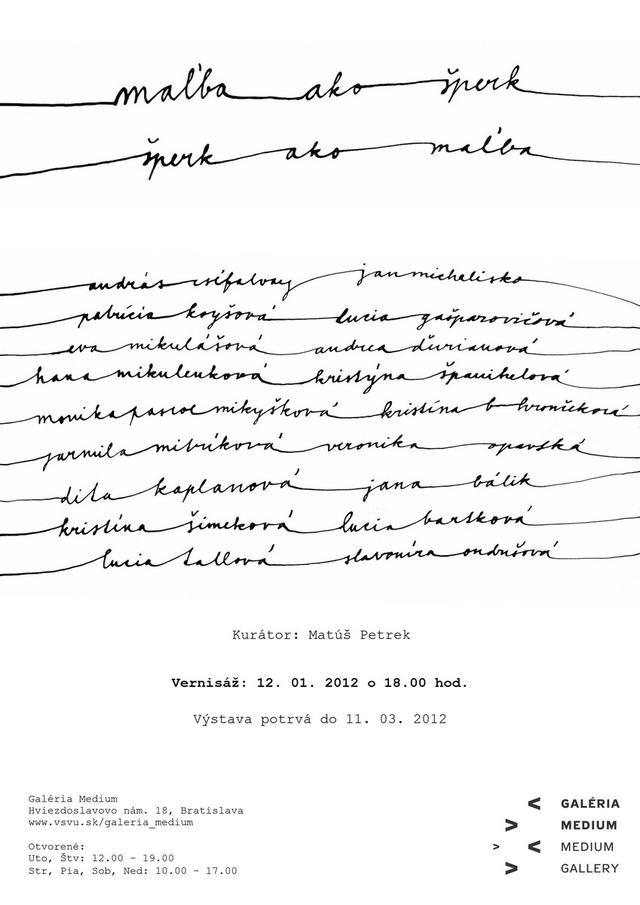 maľba ako šperk
šperk ako maľba
andrás csífalvay jan michalisko
patrícia koyšová lucia gašparovičová
eva mikulášová andrea ďurianová
hana mikulenková kristýna španihelová
monika pascoe mikyšková kristína b hrončeková
jarmila mitríková veronika opavská
dita kaplanová jana bálik
kristína šimeková lucia bartková
lucia tallová slavomíra ondrušová
Kurátor: Matúš Petrek
Vernisáž: 12. 01. 2012 o 18.00 hod.
Výstava potrvá do 11. 03. 2012
Galéria Medium
Hviezdoslavovo nám. 18, Bratislava
www.vsvu.sk/galeria_medium
Otvorené:
Uto, Štv: 12.00 - 19.00
Str, Pia, Sob, Ned: 10.00 - 17.00
< GALÉRIA
> MEDIUM
> < MEDIUM
> GALLERY